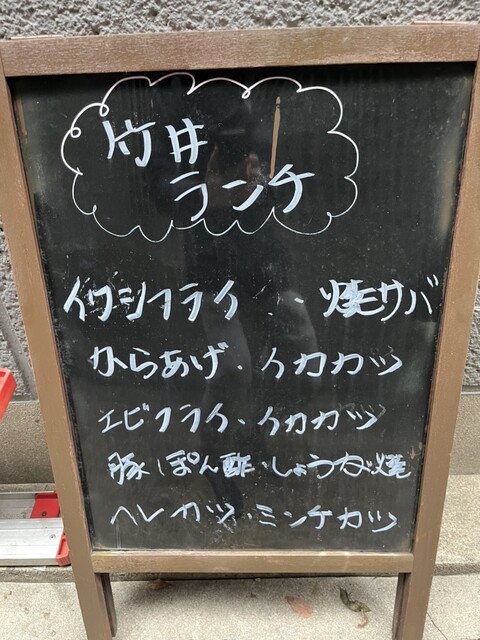 竹井
ランチ
イワシフライ・・焼サバ
からあげ・イカカツ
エビフライ・イカカツ
豚ぽん酢・しょうが焼
ヘレカツ・ミンチカツ